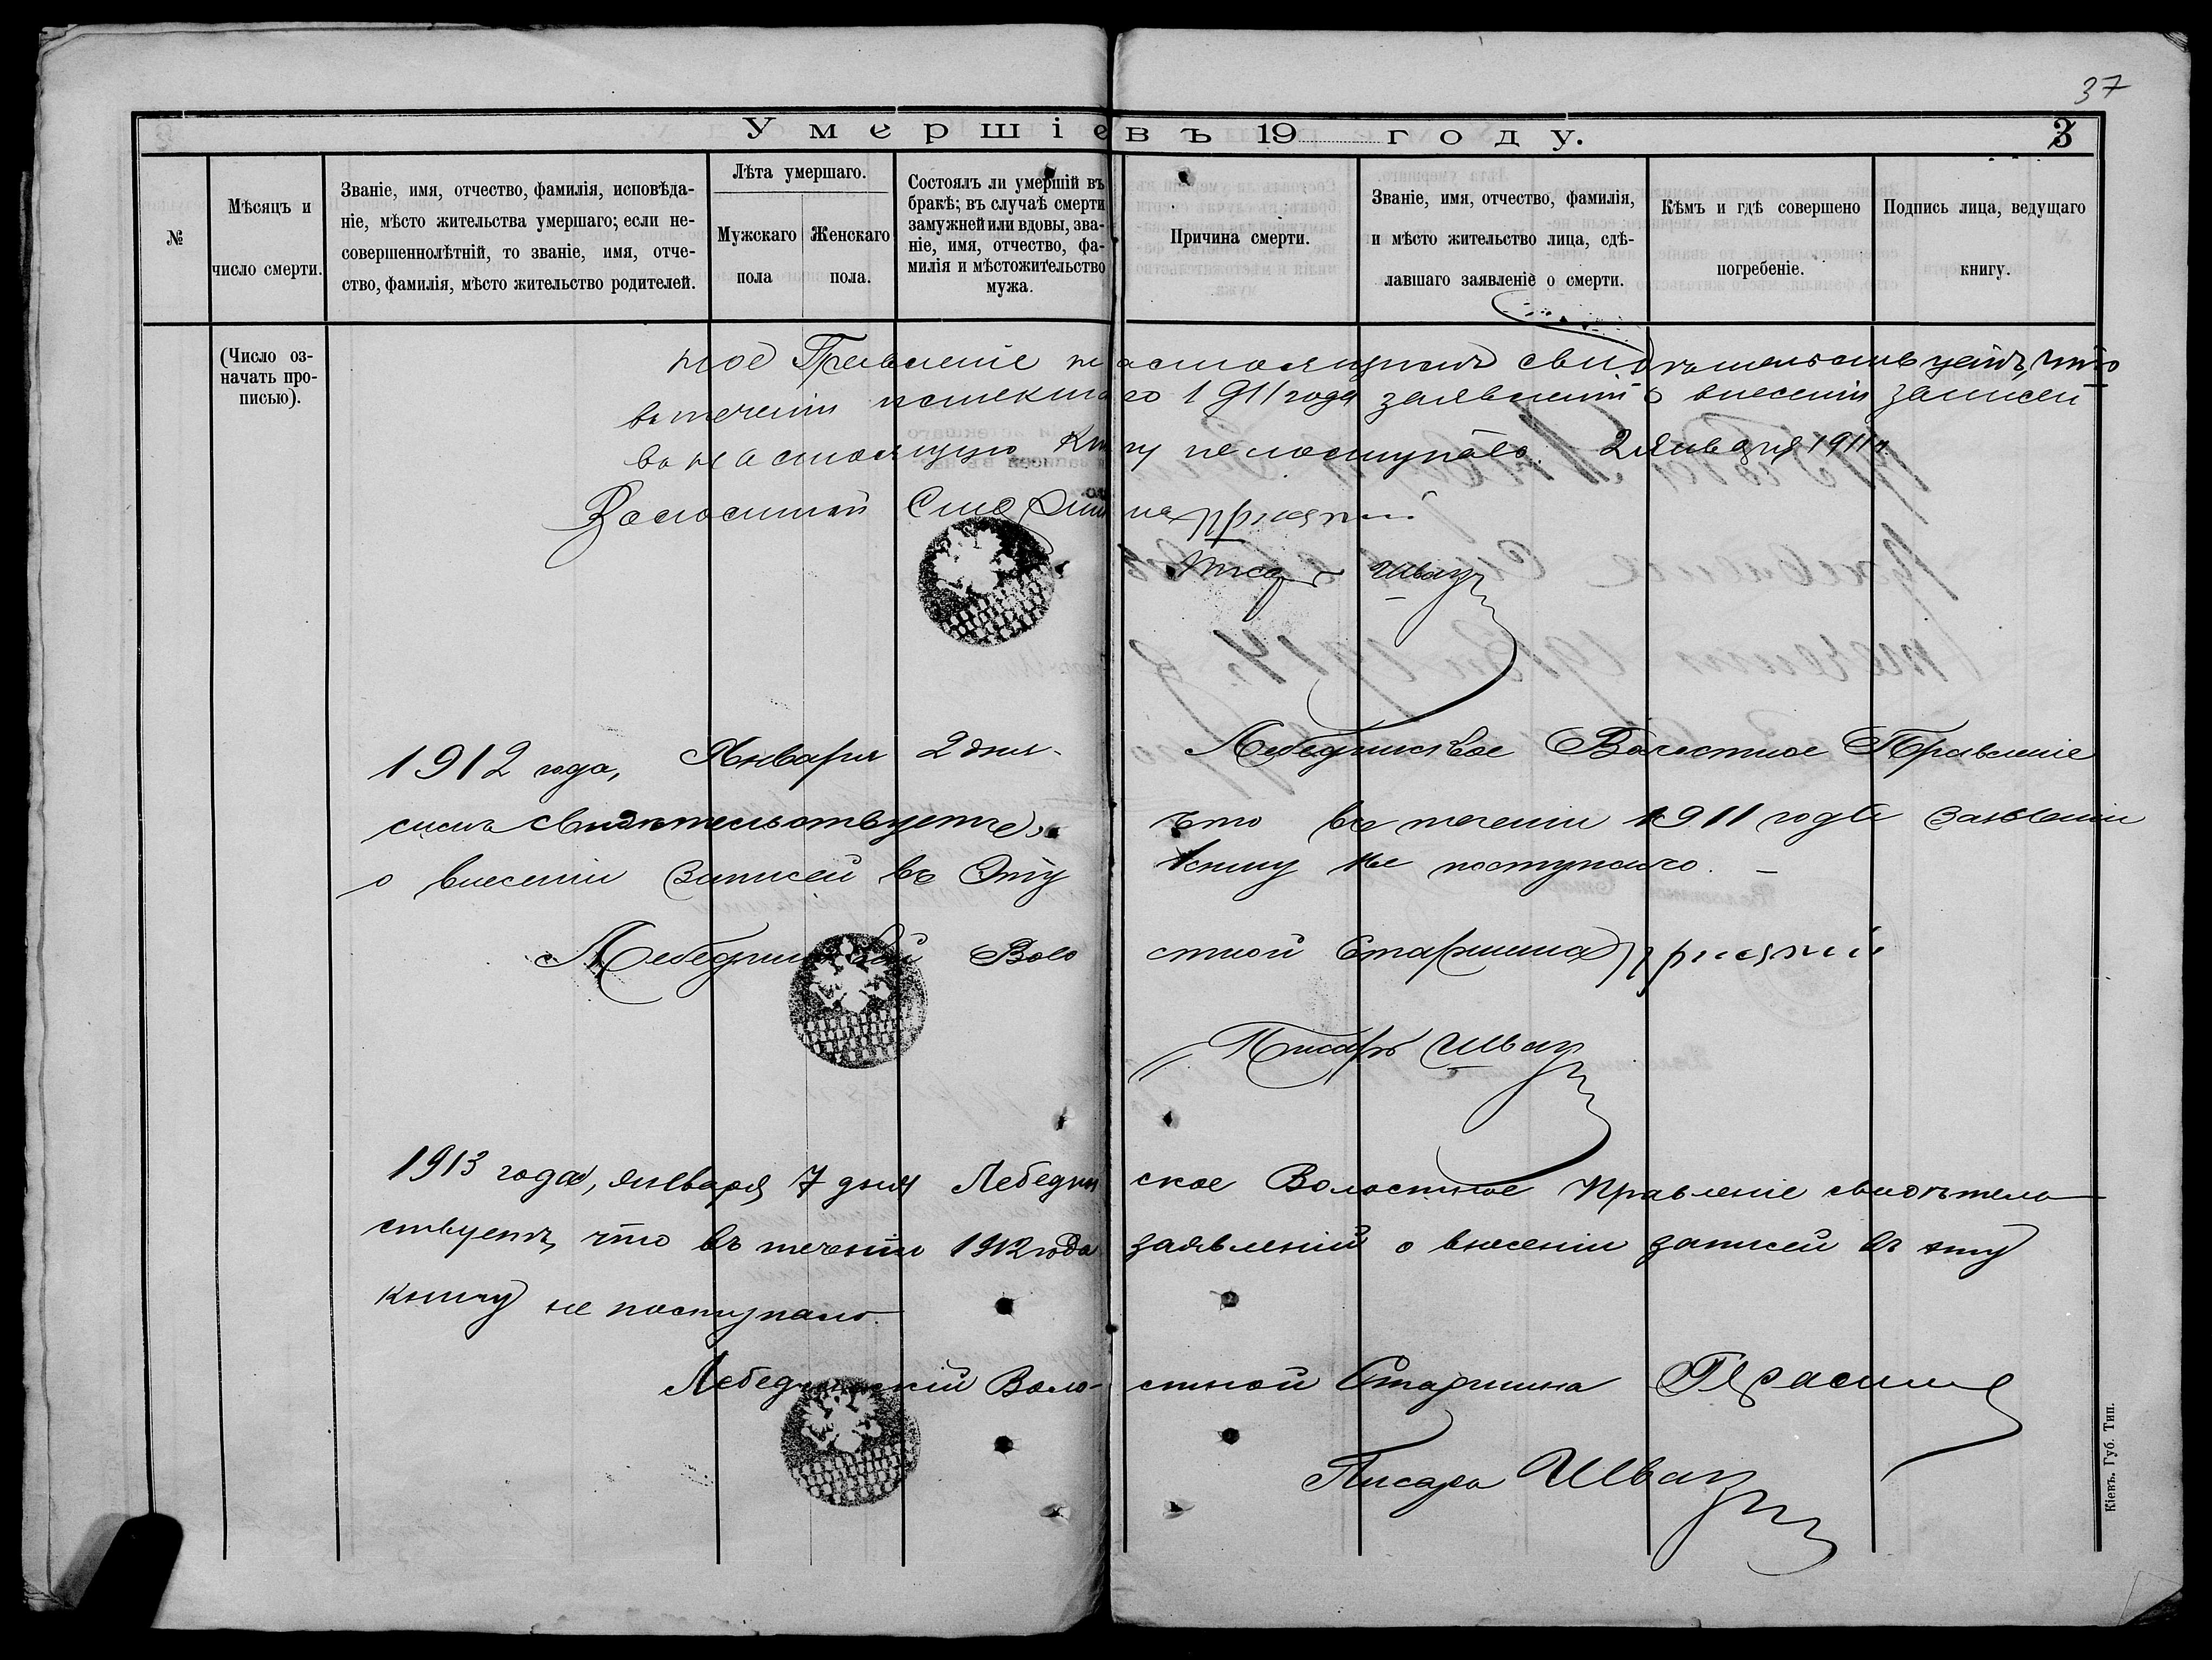 37
Умершіе въ 19 году.
3
№
Мѣсяцъ и
число смерти.
Званіе, имя, отчество, фамилія, исповѣда-
ніе, мѣсто жительства умершаго; если не-
совершеннолѣтній, то званіе, имя, отче-
ство, фамилія, мѣсто жительство родителей.
Лѣта умершаго.
Мужскаго
пола
Женскаго
пола.
Состоялъ ли умершій въ
бракѣ; въ случаѣ смерти
замужней или вдовы, зва-
ніе, имя, отчество, фа-
милія и мѣстожительство
мужа.
Причина смерти.
Званіе, имя, отчество, фамилія,
и мѣсто жительство лица, сдѣ-
лавшаго заявленіе о смерти.
Кѣмъ и гдѣ совершено
погребеніе.
Подпись лица, ведущаго
книгу.
(Число оз-
начать про-
писью).
ное Правленіе настоящимъ свидѣтельствуетъ, что
въ теченіи истекшаго 1911 года заявленій о внесеніи записей
въ настоящую книгу не поступало. 2 Января 1911 г.
Волостной Старшина
Писарь Швац
1912 года, Января 2 дня Лебединское Волостное Правленіе
симъ свидѣтельствуетъ, что въ теченіи 1911 года заявленій
о внесеніи записей въ эту книгу не поступало. —
Лебединскій Волостной Старшина
Писарь Швац
1913 года, января 7 дня Лебединское Волостное Правленіе свидѣтель
ствуетъ, что въ теченіи 1912 года заявленій о внесеніи записей въ эту
книгу не поступало.
Лебединскій Воло- стной Старшина
Писарь Швац
Кіевъ. Губ. Тип.